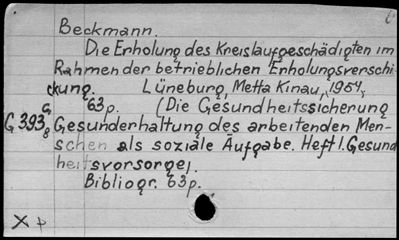 Beckmann.
Die Erholung des Kreislaufgeschädigten im
Rahmen der betrieblichen Erholungsverschi-
ckung. Lüneburg, Metta Kinau, 1954,
63p. (Die Gesundheitssicherung
G393 Gesunderhaltung des arbeitenden Men-
schen als soziale Aufgabe. Heft 1. Gesund
heitsvorsorge).
Bibliogr. 63p.
X p